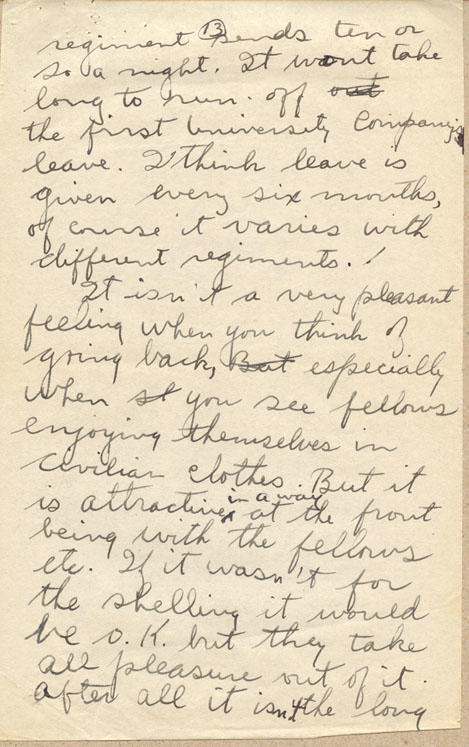 13
regiment sends ten or
so a night. It wont take
long to run off out
the first University Company's
leave. I think leave is
given every six months,
of course it varies with
different regiments.
It isn't a very pleasant
feeling when you think of
going back, But especially
when st you see fellows
enjoying themselves in
civilian clothes. But it
in a way
is attractive at the front
being with the fellows
etc. If it wasn't for
the shelling it would
be O.K. but they take
all pleasure out of it.
After all it isn't the long